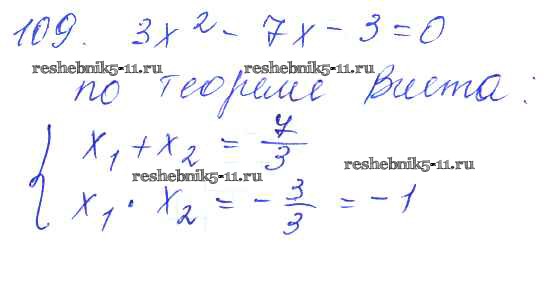 109. 3x² - 7x - 3 = 0
reshebnik5-11.ru reshebnik5-11.ru
по теореме Виета:
x₁ + x₂ = 7/3
reshebnik5-11.ru reshebnik5-11.ru
x₁ · x₂ = - 3/3 = - 1